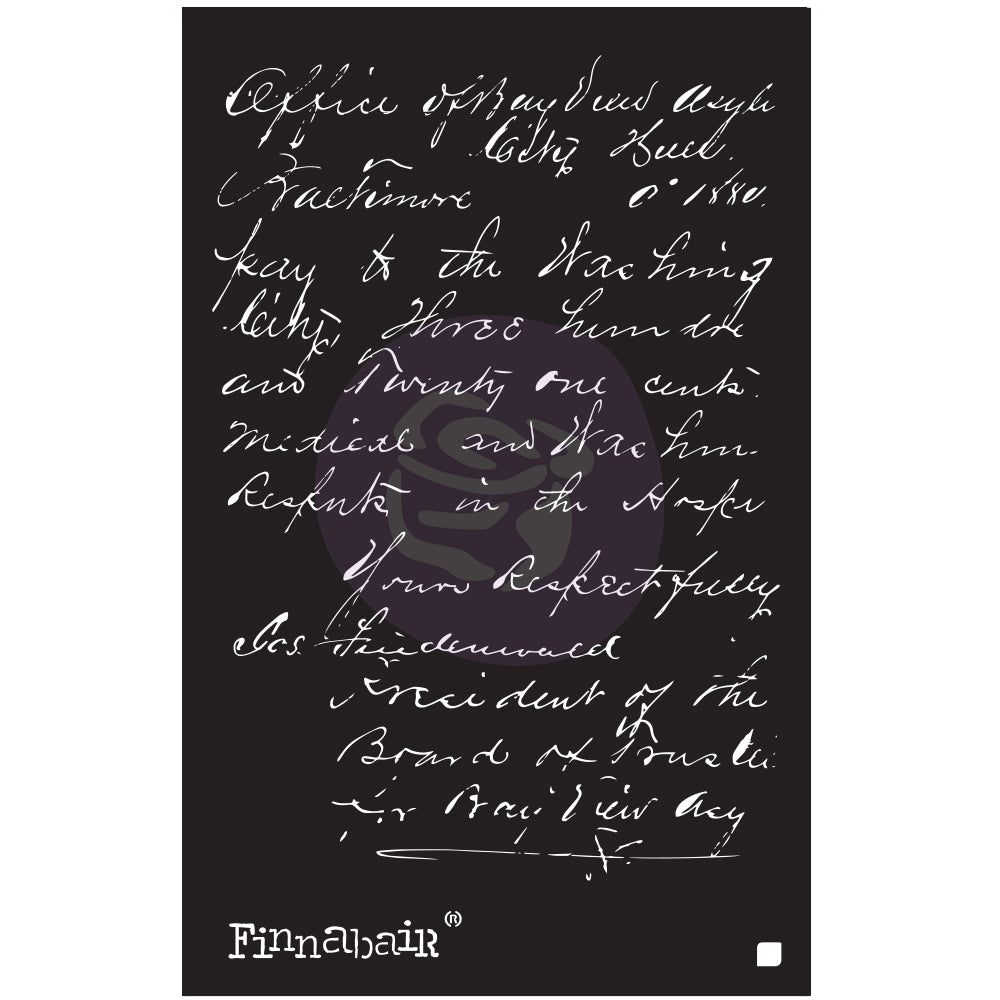 Office of Bay View Asyl
City Buil.
Baltimore 1880.
pay to the Washing
City, Three hundre
and Twenty One cents.
Medical and Washin.
in the Hospi
Yours Respectfully
President of the
Board of Truste
for Bay View Asy
Finnabair®